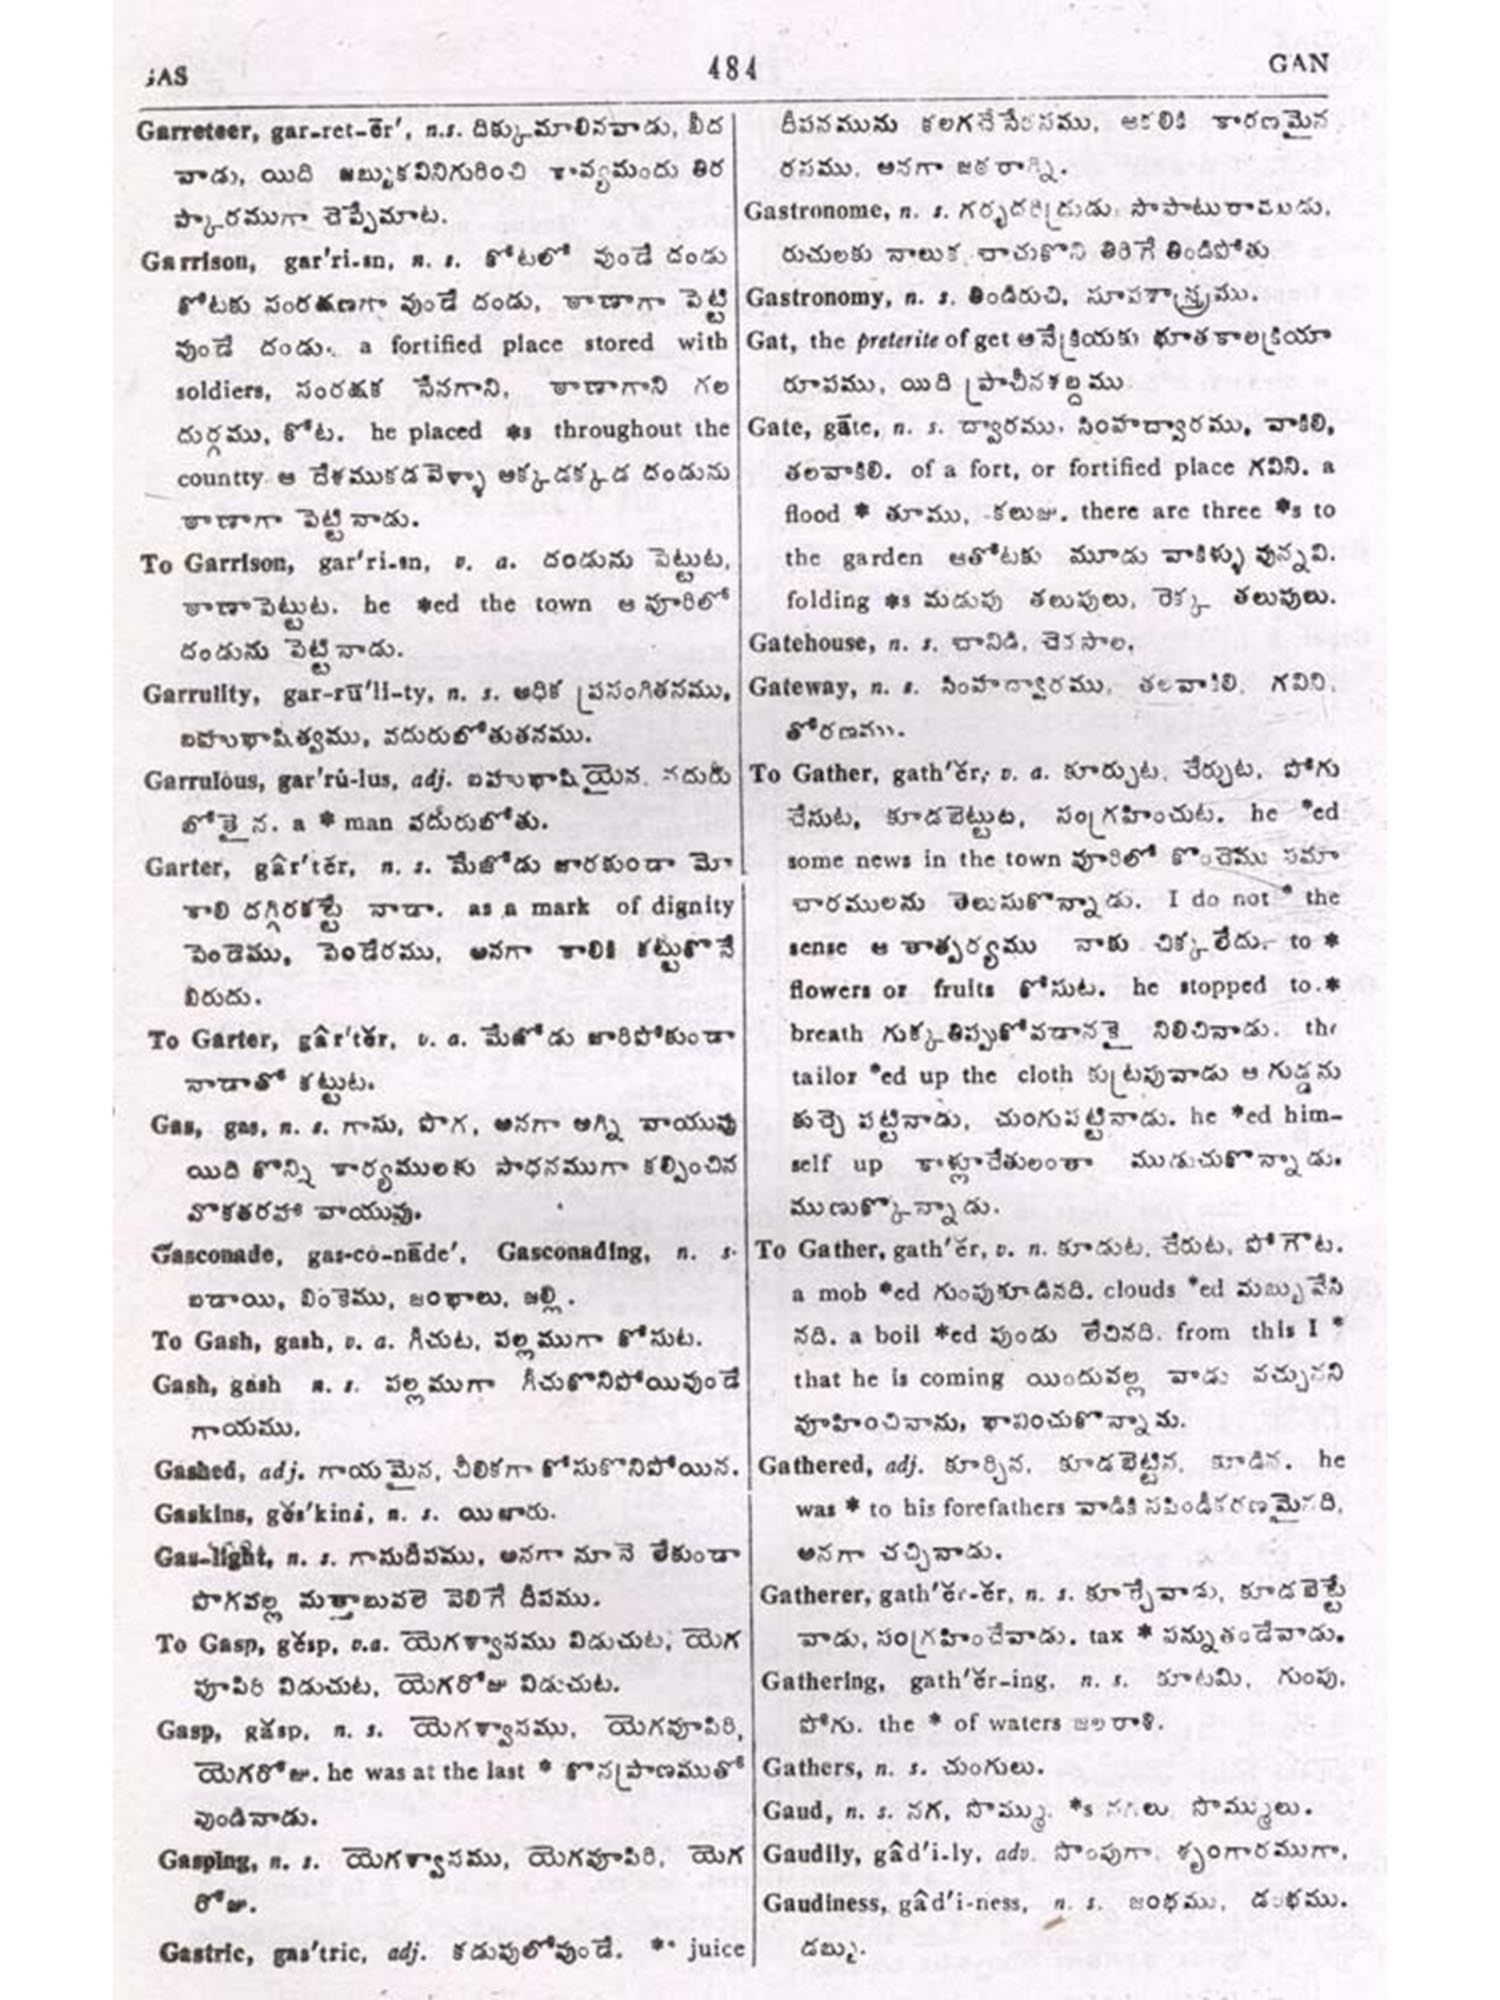 GAS 484 GAN
Garreteer, gar-ret-ēr', n.s. దిక్కుమాలినవాడు, బీద
వాడు, యిది జబ్బుకవినిగురించి కావ్యమందు తిర
స్కారముగా చెప్పేమాట.
Garrison, gar'ri-sn, n. s. కోటలో వుండే దండు
కోటకు సంరక్షణగా వుండే దండు, ఠాణాగా పెట్టి
వుండే దండు. a fortified place stored with
soldiers, సంరక్షక సేనగాని, ఠాణాగాని గల
దుర్గము, కోట. he placed *s throughout the
countty ఆ దేశముకడవెళ్ళా అక్కడక్కడ దండును
ఠాణాగా పెట్టినాడు.
To Garrison, gar'ri-sn, v. a. దండును పెట్టుట,
ఠాణాపెట్టుట. he *ed the town ఆ వూరిలో
దండును పెట్టినాడు.
Garrulity, gar-rū'li-ty, n. s. అధిక ప్రసంగితనము,
బహుభాషిత్వము, వదురుబోతుతనము.
Garrulous, gar'rū-lus, adj. బహుభాషియైన, వదురు
బోతైన. a * man వదురుబోతు.
Garter, gâr'tĕr, n. s. మేజోడు జారకుండా మో
కాలి దగ్గిరకట్టే నాడా. as a mark of dignity
పెండెము, పెండేరము, అనగా కాలికి కట్టుకొనే
బిరుదు.
To Garter, gâr'tĕr, v. a. మేజోడు జారిపోకుండా
నాడాతో కట్టుట.
Gas, gas, n. s. గాసు, పొగ, అనగా అగ్ని వాయువు
యిది కొన్ని కార్యములకు సాధనముగా కల్పించిన
వొకతరహా వాయువు.
Gasconade, gas-co-nāde', Gasconading, n. s.
బడాయి, బింకెము, జంభాలు, జల్లి.
To Gash, gash, v. a. గీచుట, పల్లముగా కోసుట.
Gash, gash n. s. పల్లముగా గీచుకొనిపోయివుండే
గాయము.
Gashed, adj. గాయమైన, చీలికగా కోసుకొనిపోయిన.
Gaskins, găs'kins, n. s. యిజారు.
Gas-light, n. s. గాసుదీపము, అనగా నూనె లేకుండా
పొగవల్ల మత్తాబువలె వెలిగే దీపము.
To Gasp, găsp, v.a. యెగశ్వాసము విడుచుట, యెగ
వూపిరి విడుచుట, యెగరోజు విడుచుట.
Gasp, găsp, n. s. యెగశ్వాసము, యెగవూపిరి,
యెగరోజు. he was at the last * కొనప్రాణముతో
వుండినాడు.
Gasping, n. s. యెగశ్వాసము, యెగవూపిరి, యెగ
రోజు.
Gastric, gas'tric, adj. కడుపులోవుండే. * juice
దీపనమును కలగచేసేరసము, ఆకలికి కారణమైన
రసము, అనగా జఠరాగ్ని.
Gastronome, n. s. గర్భదరిద్రుడు, సాపాటురాముడు,
రుచులకు నాలుక చాచుకొని తిరిగే తిండిపోతు
Gastronomy, n. s. తిండిరుచి, సూపశాస్త్రము.
Gat, the preterite of get అనేక్రియకు భూతకాలక్రియా
రూపము, యిది ప్రాచీనశబ్దము
Gate, gāte, n. s. ద్వారము, సింహద్వారము, వాకిలి,
తలవాకిలి. of a fort, or fortified place గవిని. a
flood * తూము, కలుజు. there are three *s to
the garden ఆతోటకు మూడు వాకిళ్ళు వున్నవి.
folding *s మడుపు తలుపులు, రెక్క తలుపులు.
Gatehouse, n. s. చావిడి, చెరసాల,
Gateway, n. s. సింహద్వారము, తలవాకిలి, గవిని,
తోరణము.
To Gather, gath'ĕr, v. a. కూర్చుట, చేర్చుట, పోగు
చేసుట, కూడబెట్టుట, సంగ్రహించుట. he *ed
some news in the town వూరిలో కొంచెము సమా
చారములను తెలుసుకొన్నాడు. I do not * the
sense ఆ తాత్పర్యము నాకు చిక్కలేదు. to *
flowers or fruits కోసుట. he stopped to *
breath గుక్కతిప్పుకోవడానకై నిలిచినాడు. the
tailor *ed up the cloth కుట్రపువాడు ఆ గుడ్డను
కుచ్చె పట్టినాడు, చుంగుపట్టినాడు. he *ed him-
self up కాళ్లూచేతులంతా ముడుచుకొన్నాడు.
ముణుక్కొన్నాడు.
To Gather, gath'ĕr, v. n. కూడుట, చేరుట, పోగౌట.
a mob *ed గుంపుకూడినది. clouds *ed మబ్బువేసి
నది. a boil *ed పుండు లేచినది. from this I *
that he is coming యిందువల్ల వాడు వచ్చునని
వూహించినాను, భావించుకొన్నాను.
Gathered, adj. కూర్చిన, కూడబెట్టిన, కూడిన. he
was * to his forefathers వాడికి సపిండీకరణమైనది,
అనగా చచ్చినాడు.
Gatherer, gath'ĕr-ĕr, n. s. కూర్చేవాడు, కూడబెట్టే
వాడు, సంగ్రహించేవాడు. tax * పన్నుతండేవాడు.
Gathering, gath'ĕr-ing, n. s. కూటమి, గుంపు,
పోగు. the * of waters జలరాశి.
Gathers, n. s. చుంగులు.
Gaud, n. s. నగ, సొమ్ము. *s నగలు, సొమ్ములు.
Gaudily, gâd'i-ly, adv. సొంపుగా, శృంగారముగా,
Gaudiness, gâd'i-ness, n. s. జంభము, డంభము.
డబ్బు.